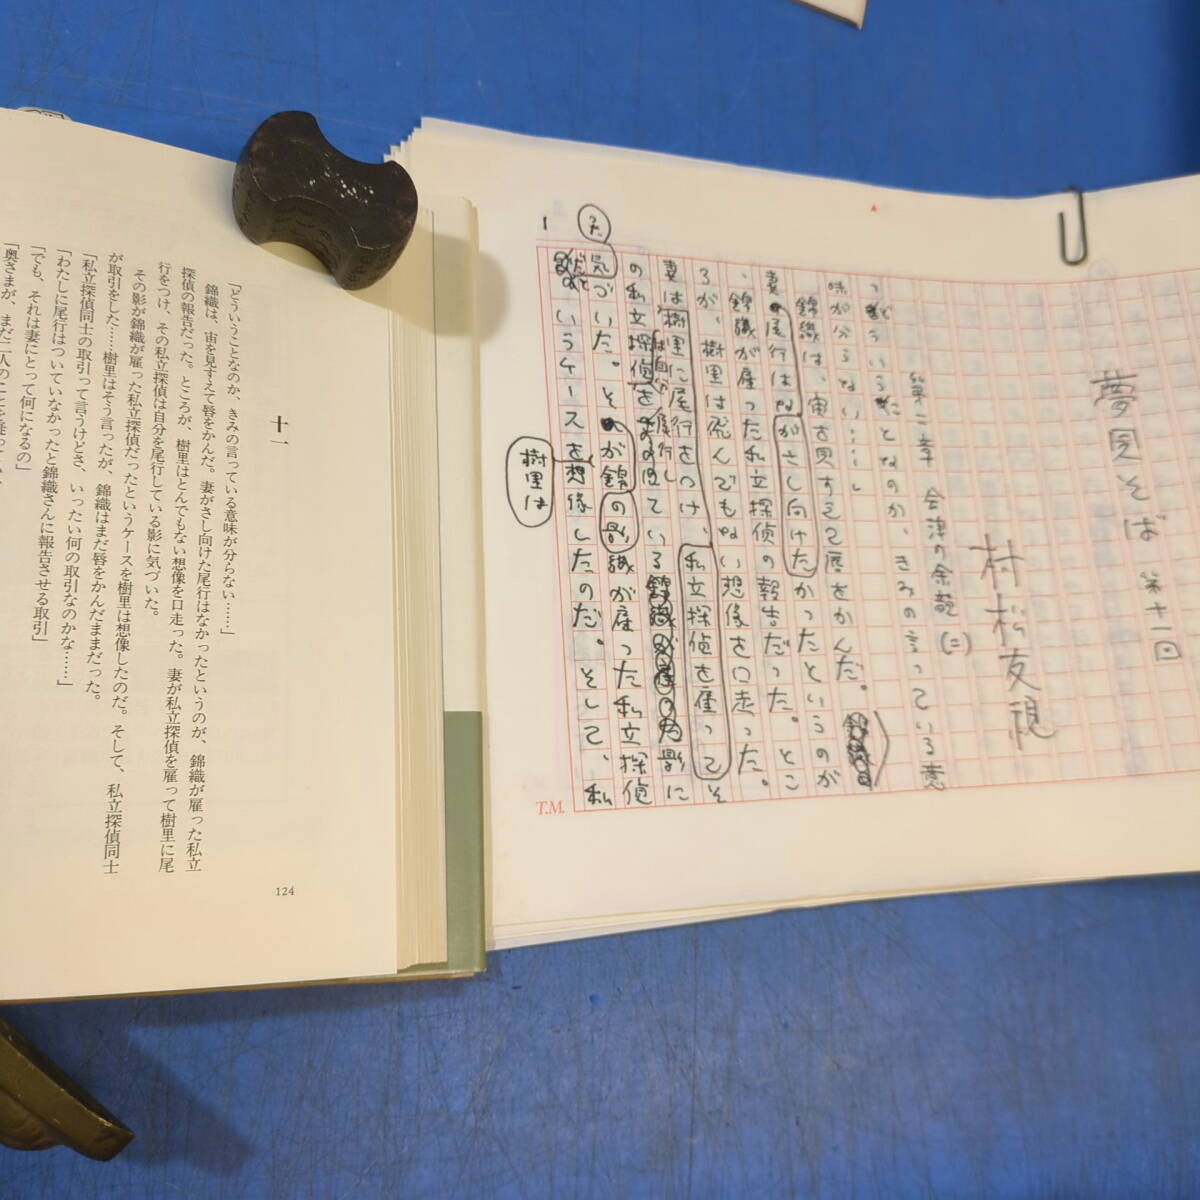 夢見そば 第十一回
村松友視
第二章 会津の余韻(二)
「どういうことなのか、きみの言っている意
味が分らない……」
錦織は、宙を見すえて唇をかんだ。
妻がさし向けた尾行はなかったというのが
、錦織が雇った私立探偵の報告だった。とこ
ろが、樹里は飛んでもない想像を口走った。
妻は樹里に尾行をつけ、私立探偵を雇って
その私立探偵は自分を尾行している影に
気づいた。その影が錦織が雇った私立探偵
だったというケースを想像したのだ。そして、私
樹里は
1
T.M.
十一
「どういうことなのか、きみの言っている意味が分らない……」
錦織は、宙を見すえて唇をかんだ。妻がさし向けた尾行はなかったというのが、錦織が雇った私立
探偵の報告だった。ところが、樹里はとんでもない想像を口走った。妻が私立探偵を雇って樹里に尾
行をつけ、その私立探偵は自分を尾行している影に気づいた。
その影が錦織が雇った私立探偵だったというケースを樹里は想像したのだ。そして、私立探偵同士
が取引をした……樹里はそう言ったが、錦織はまだ唇をかんだままだった。
「私立探偵同士の取引って言うけどさ、いったい何の取引なのかな……」
「わたしに尾行はついていなかったと錦織さんに報告させる取引」
「でも、それは妻にとって何になるの」
「奥さまが、まだ二人のことを
124